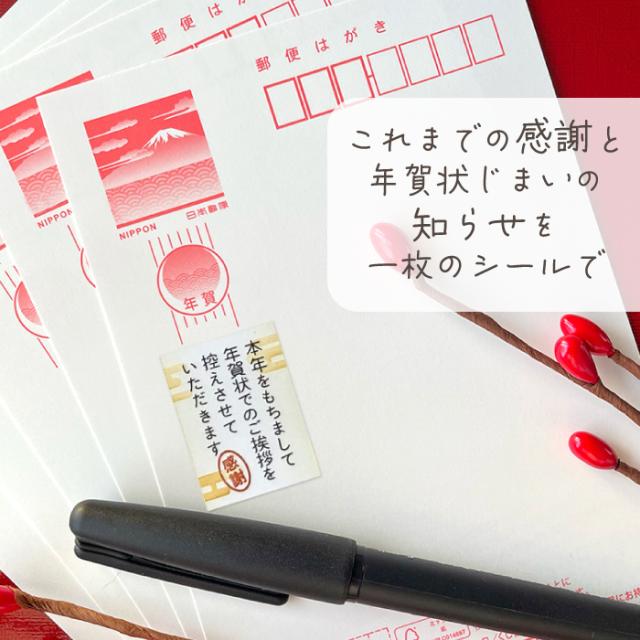 郵便はがき
郵便はがき
NIPPON
NIPPON
日本郵便
年賀
これまでの感謝と
年賀状じまいの
知らせを
一枚のシールで
本年をもちまして
年賀状でのご挨拶を
控えさせて
いただきます
感謝